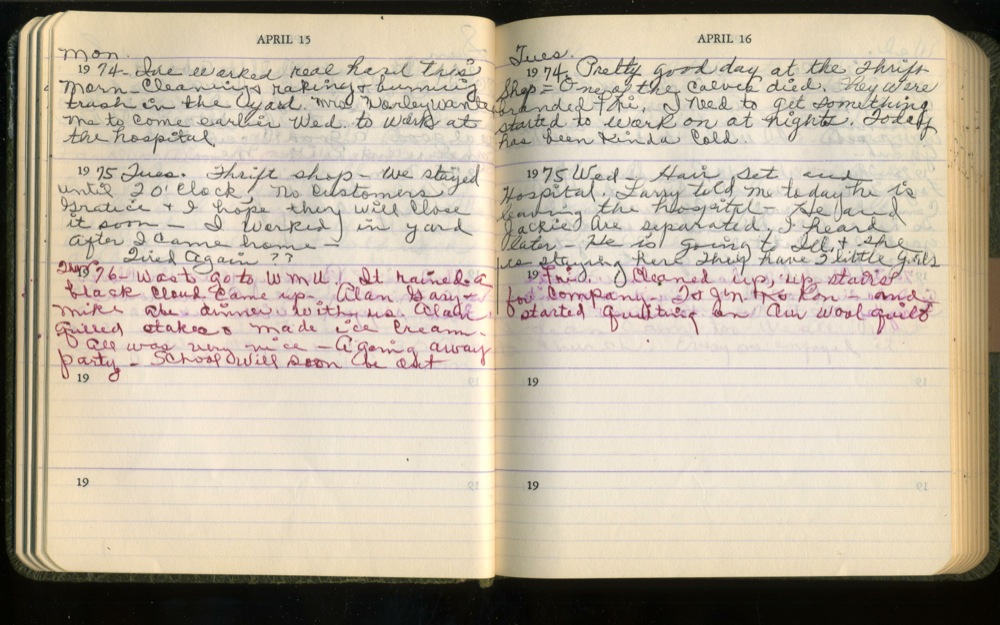 APRIL 15
Mon.
1974 - I've worked real hard this
morn - Cleaning raking & burning
trash in the yard. Mrs. Worley wants
me to come earlier Wed. to work at
the hospital
1975 Tues. Thrift shop - We stayed
until 2 O'Clock, No Customers
& I hope they will Close
it soon - I worked in yard
after I came home -
Tired Again ??
Thur 1976 - Was to go to W.M.U. It rained - a
black Cloud Came up - Alan Gary &
Mike ate dinner with us. Alan
grilled steaks & made ice cream -
All was very nice - A going away
party - School will soon be out
19
19
APRIL 16
Tues.
1974. Pretty good day at the Thrift
Shop = One of the Calves died. They were
branded Fri. I need to get something
started to work on at nights. Today
has been Kinda Cold.
1975 Wed - Hair Set and
Hospital. Larry told me today he is
leaving the hospital - He and
Jackie are separated, I heard
later - He is going to Ill. & she
is staying here They have 3 little Girls
19 Fri. Cleaned up, up stairs
for Company - Ron - and
started quilting on Our wool quilt
19
19